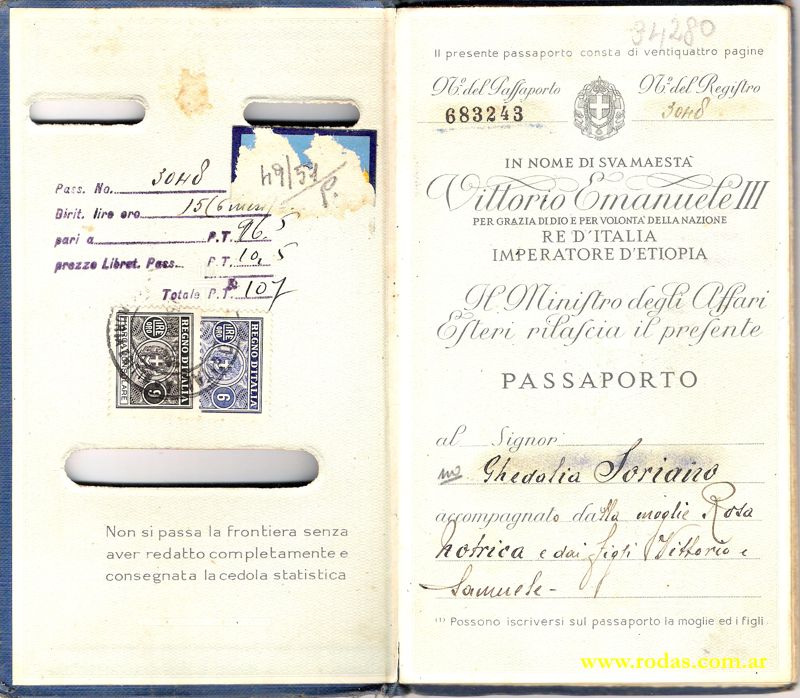 49/51
P.
Pass. No. 3048
Dirit. lire oro 15 (6 mesi)
pari a P.T. 96.5
prezzo Libret. Pass. P.T. 10,5
Totale P.T. 107
LIRE ORO
REGNO D'ITALIA
9
LIRE ORO
REGNO D'ITALIA
6
Non si passa la frontiera senza
aver redatto completamente e
consegnata la cedola statistica
34280
Il presente passaporto consta di ventiquattro pagine
N.º del Passaporto N.º del Registro
683243 3048
IN NOME DI SVA MAESTA'
Vittorio Emanuele III
PER GRAZIA DI DIO E PER VOLONTA' DELLA NAZIONE
RE D'ITALIA
IMPERATORE D'ETIOPIA
Il Ministro degli Affari
Esteri rilascia il presente
PASSAPORTO
al Signor
Ghedalia Soriano
accompagnato dalla moglie Rosa
Notrica e dai figli Vittorio e
Samuele -
(1) Possono iscriversi sul passaporto la moglie ed i figli
www.rodas.com.ar